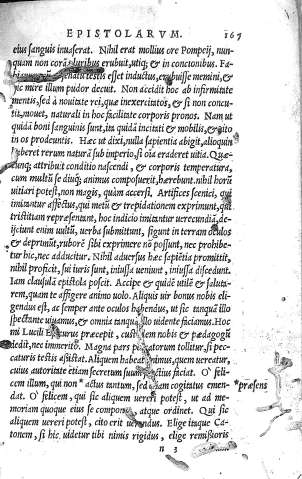 EPISTOLARVM. 167
eius sanguis inuaserat. Nihil erat mollius ore Pompeij, nun-
quam non coram pluribus erubuit, utiq; & in concionibus. Fa-
in senatum testis esset inductus, erubuisse memini, &
hic mire illum pudor decuit. Non accidit hoc ab infirmitate
mentis, sed à nouitate rei, quæ inexercitatos, & si non concu-
tit, mouet, naturali in hoc facilitate corporis pronos. Nam ut
quidã boni sanguinis sunt, ita quidã incitati & mobilis, & cito
in os prodeuntis. Hæc ut dixi, nulla sapientia abigit, alioquin
haberet rerum naturã sub imperio, si oĩa eraderet uitia. Quæ-
cunq; attribuit conditio nascendi, & corporis temperatura,
cum multũ se diuq; animus composuerit, hærebunt. nihil horũ
uitiari potest, non magis, quàm acersi. Artifices scenici, qui
imitantur affectus, qui metũ & trepidationem exprimunt, qui
tristitiam repræsentant, hoc indicio imitantur uerecundiã, de-
ijciunt enim uultũ, uerba submittunt, figunt in terram oculos
& deprimũt, ruborẽ sibi exprimere nõ possunt, nec prohibe-
tur hic, nec adducitur. Nihil aduersus hæc sapiẽtia promittit,
nihil proficit, sui iuris sunt, iniussa ueniunt, iniussa discedunt.
Iam clausulã epistola poscit. Accipe & quidẽ utilẽ & saluta-
rem, quam te affigere animo uolo. Aliquis uir bonus nobis eli-
gendus est, ac semper ante oculos habendus, ut sic tanquã illo
spectante uiuamus, & omnia tanquã illo uidente faciamus. Hoc
mi Lucili Epicurus præcepit, custodem nobis & pædagogũ
dedit, nec immeritò. Magna pars peccatorum tollitur, si pec-
caturis testis assistat. Aliquem habeat animus, quem uereatur,
cuius autoritate etiam secretum suum sanctius faciat. O feli-
cem illum, qui non * actus tantum, sed etiam cogitatus emen- *præsens
dat. O felicem, qui sic aliquem uereri potest, ut ad me-
moriam quoque eius se componat, atque ordinet. Qui sic
aliquem uereri potest, citò erit uerendus. Elige itaque Ca-
tonem, si hic uidetur tibi nimis rigidus, elige remißioris
n 3